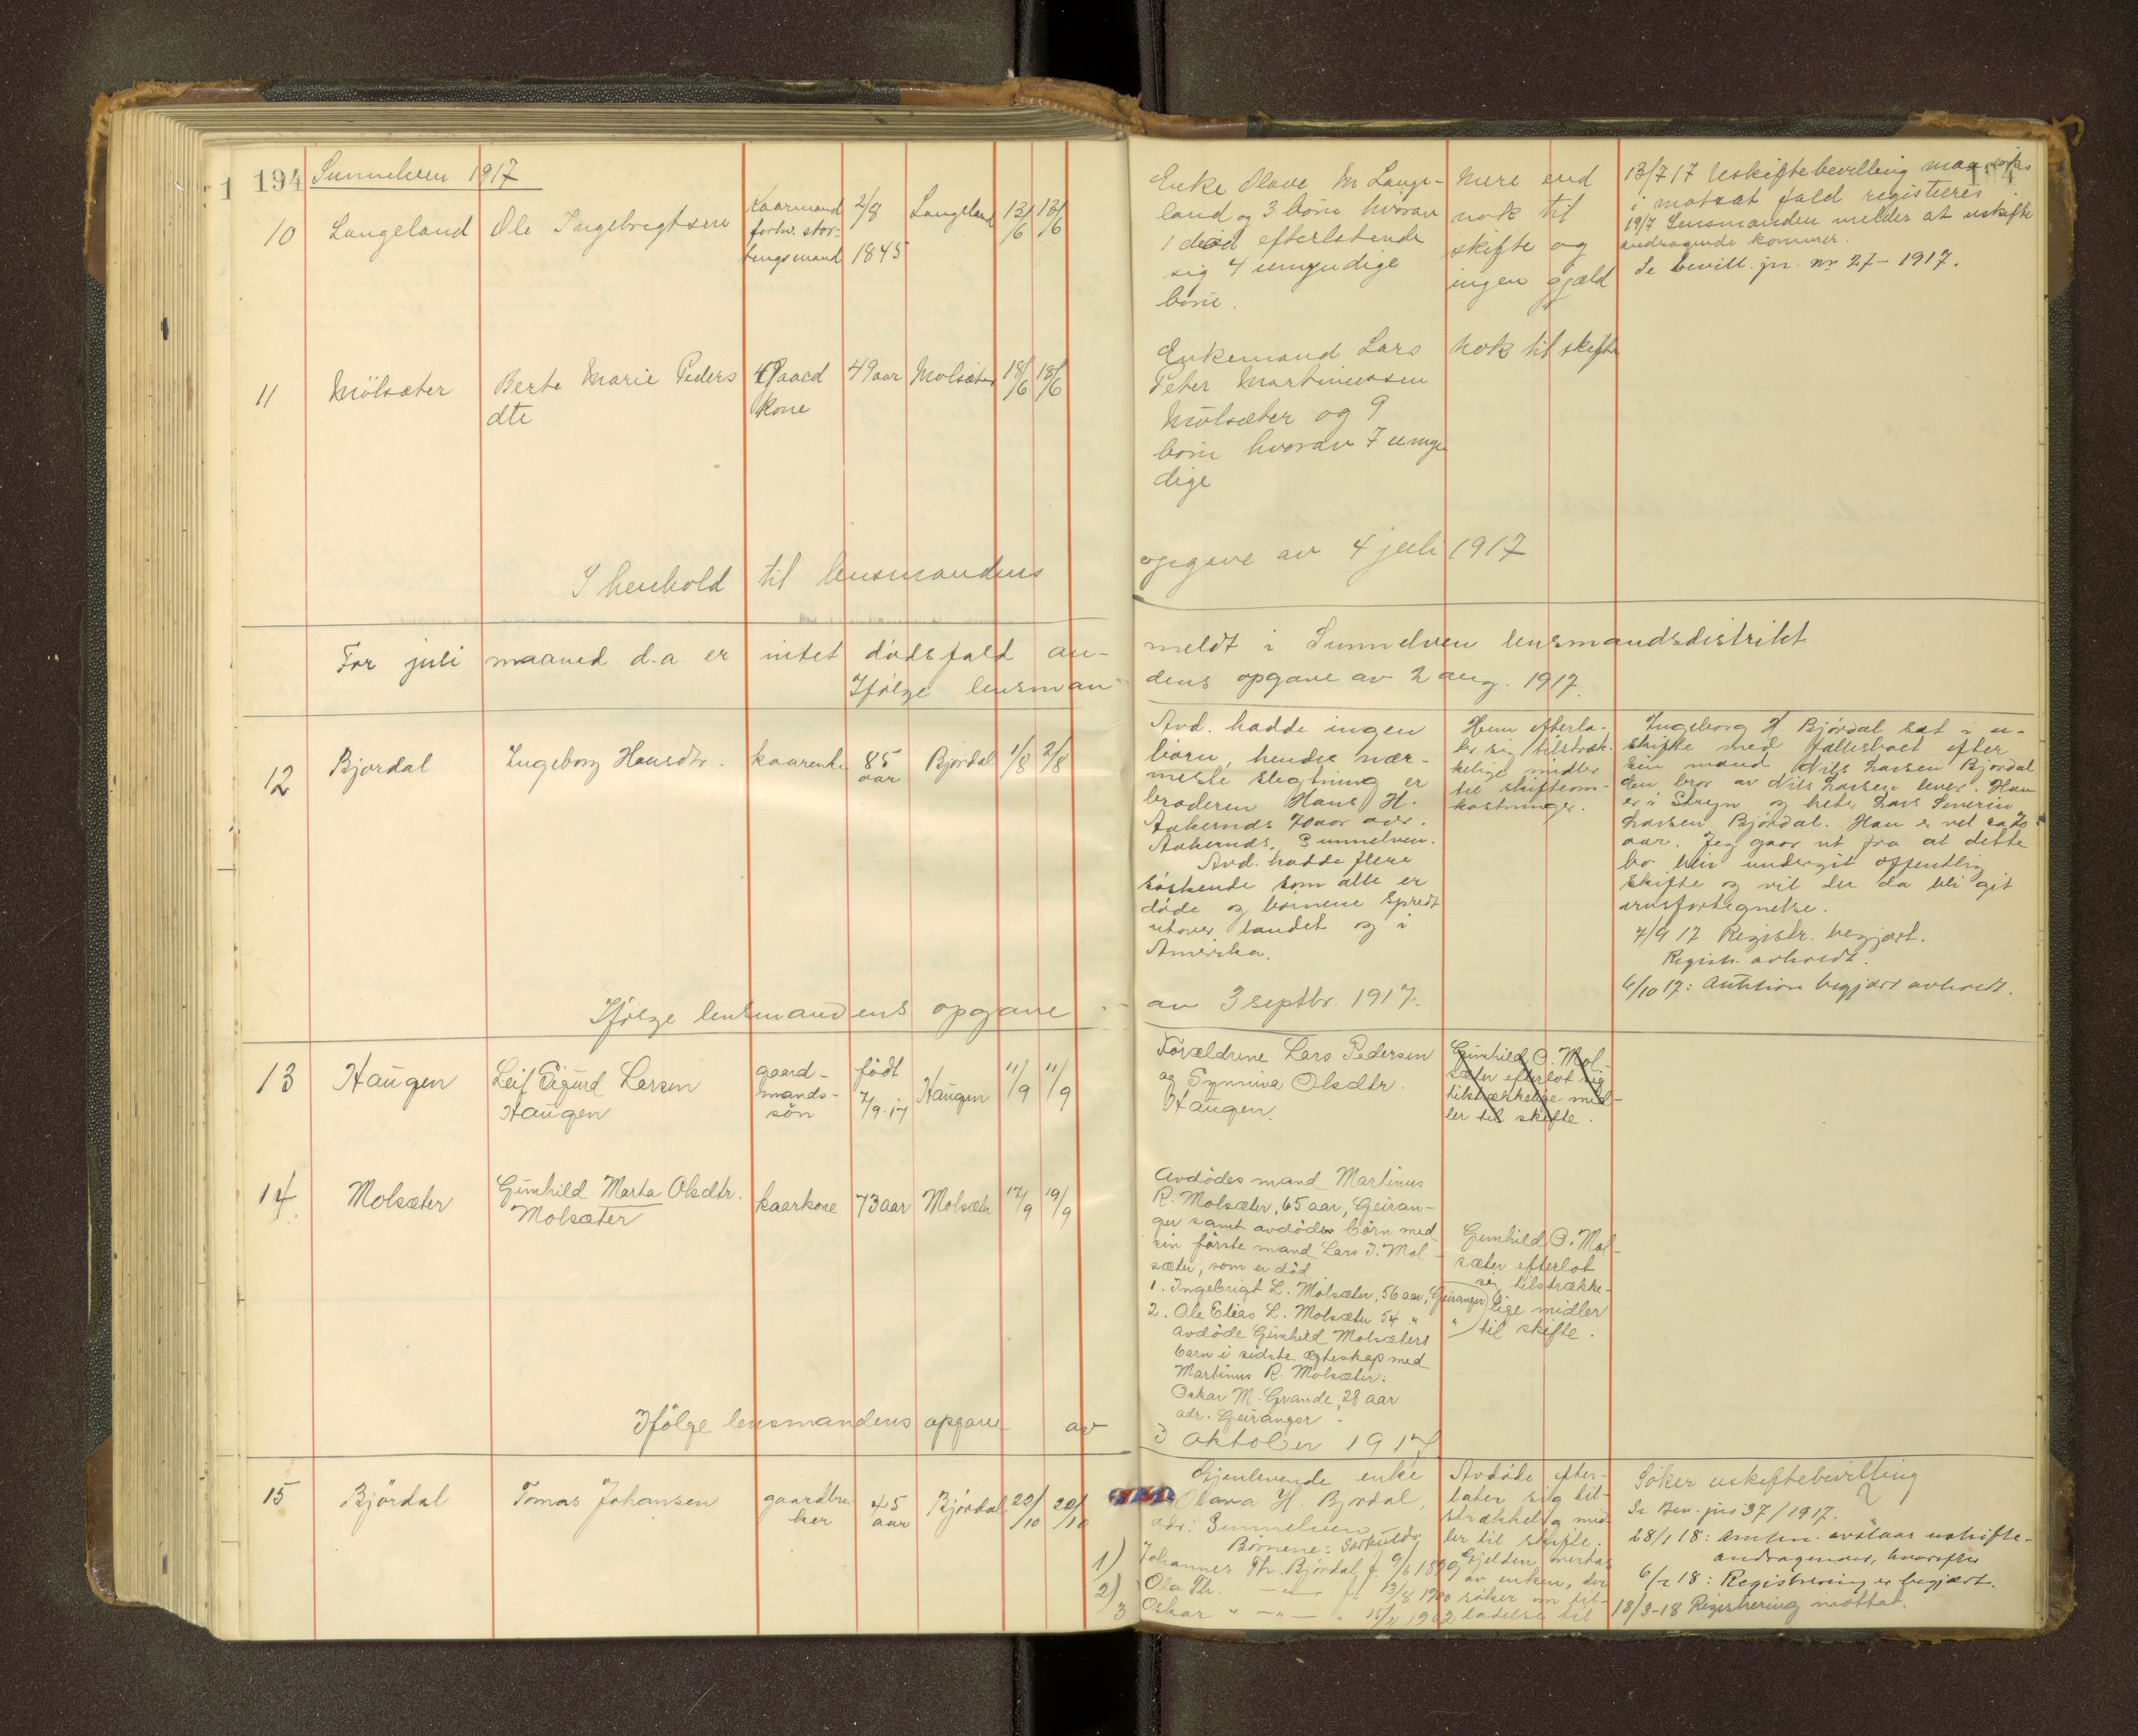 194 Sunnelven 1917
10 Langeland Ole Ingebrigtsen Kaarmand 2/8 Langeland 13/6 13/6
forhv. stor-
tingsmand 1845
Enke Olave M Lange-
land og 3 börn hvorav
1 död efterlatende
sig 4 umyndige
börn.
Mere end
nok til
skifte og
ingen gjæld
13/7 17 Uskiftebevilling maa
i motsat fald registreres
19/7 Lensmanden melder at uskifte
andragende kommer.
Se bevill. jr. nr 27 - 1917.
11 Mölsæter Berte Marie Peders Gaard 49 aar Molsæter 18/6 18/6
dte kone
Enkemand Lars
Peter Martinussen
Mölsæter og 9
börn hvorav 7 umyn
dige
Nok til skifte
I henhold til lensmandens opgave av 4 juli 1917
For juli maaned d.a. er intet dödsfald an- meldt i Sunnelven lensmandsdistrikt
Ifölge lensman- dens opgave av 2 aug. 1917.
12 Bjørdal Ingeborg Hansdtr. kaarenke 85 Bjørdal 1/8 2/8
aar
Avd. hadde ingen
börn, hendes nær-
meste slegtning er
broderen Hans H.
70 aar adr.
Sunnelven.
Avd. hadde flere
söskende som alle er
döde og börnene spredt
utover landet og i
Amerika.
Hun efterla-
ter sig tilstræk-
kelige midler
til skifteom-
kostninger.
Ingeborg H. Bjørdal sat i u-
skifte med fællesboet efter
sin mand Nils Larsen Bjørdal
den bror av Nils Larsen lever. Han
er i Stryn og heter Lars Severin
Larsen Bjørdal. Han er vel ca 70
aar. Jeg gaar ut fra at dette
bo blir undergit offentlig
skifte og vil der da bli git
arvefortegnelse.
7/9 17 Registr. begjært.
Registr. avholdt.
6/10 17: Auktion begjært avholdt.
Ifölge lensmandens opgave av 3 septbr. 1917.
13 Haugen Leif Sigurd Larsen gaard- födt Haugen 11/9 11/9
Haugen mands- 7/9-17
sön
Forældrene Lars Pedersen
og Synniva Olsdtr.
Haugen.
Gunhild O. Mol-
sæter efterlot sig
tilstrækkelige mid-
ler til skifte.
14 Molsæter Gunhild Marta Olsdtr. kaarkone 73 aar Molsæter 17/9 19/9
Molsæter
Avdödes mand Martinus
R. Molsæter, 65 aar, Geiran-
ger samt avdödes börn med
sin förste mand Lars I. Mol-
sæter, som er död
1. Ingebrigt L. Molsæter, 56 aar, Geiranger
2. Ole Elias L. Molsæter 54 " "
avdöde Gunhild Molsæters
barn i sidste ægteskap med
Martinus R. Molsæter:
Oskar M. Grande, 28 aar
adr. Geiranger.
Gunhild O. Mol-
sæter efterlot
sig tilstrække-
lige midler
til skifte.
Ifölge lensmandens opgave av 3 oktober 1917
15 Bjørdal Tomas Johansen gaardbru- 45 Bjørdal 20/10 20/10
ker aar
Gjenlevende enke
Olava H. Bjørdal,
adr: Sunnelven
Börnene:
1) Johannes Th. Bjørdal f. 9/6 1899
2) Ola Th. — " — f. 13/8 1900
3 Oskar " — " — " 15/11 1902
Avdöde efter-
later sig til-
strækkelig mid-
ler til skifte.
Gjelden
av enken, der
söker om til-
ladelse til
Söker uskiftebevilling
Se Bev. jrs 37 / 1917.
28/1 18: Amtm. avslaar uskifte-
andragendet, hvorefter
6/2 18: Registrering er begjært.
18/3-18 Registrering mottat.